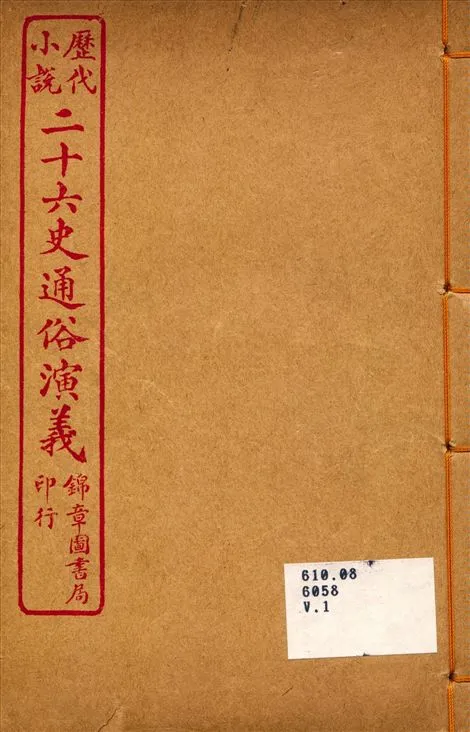 歷代
小說
二十六史通俗演義
錦章圖書局
印行
610.08
6058
V.1